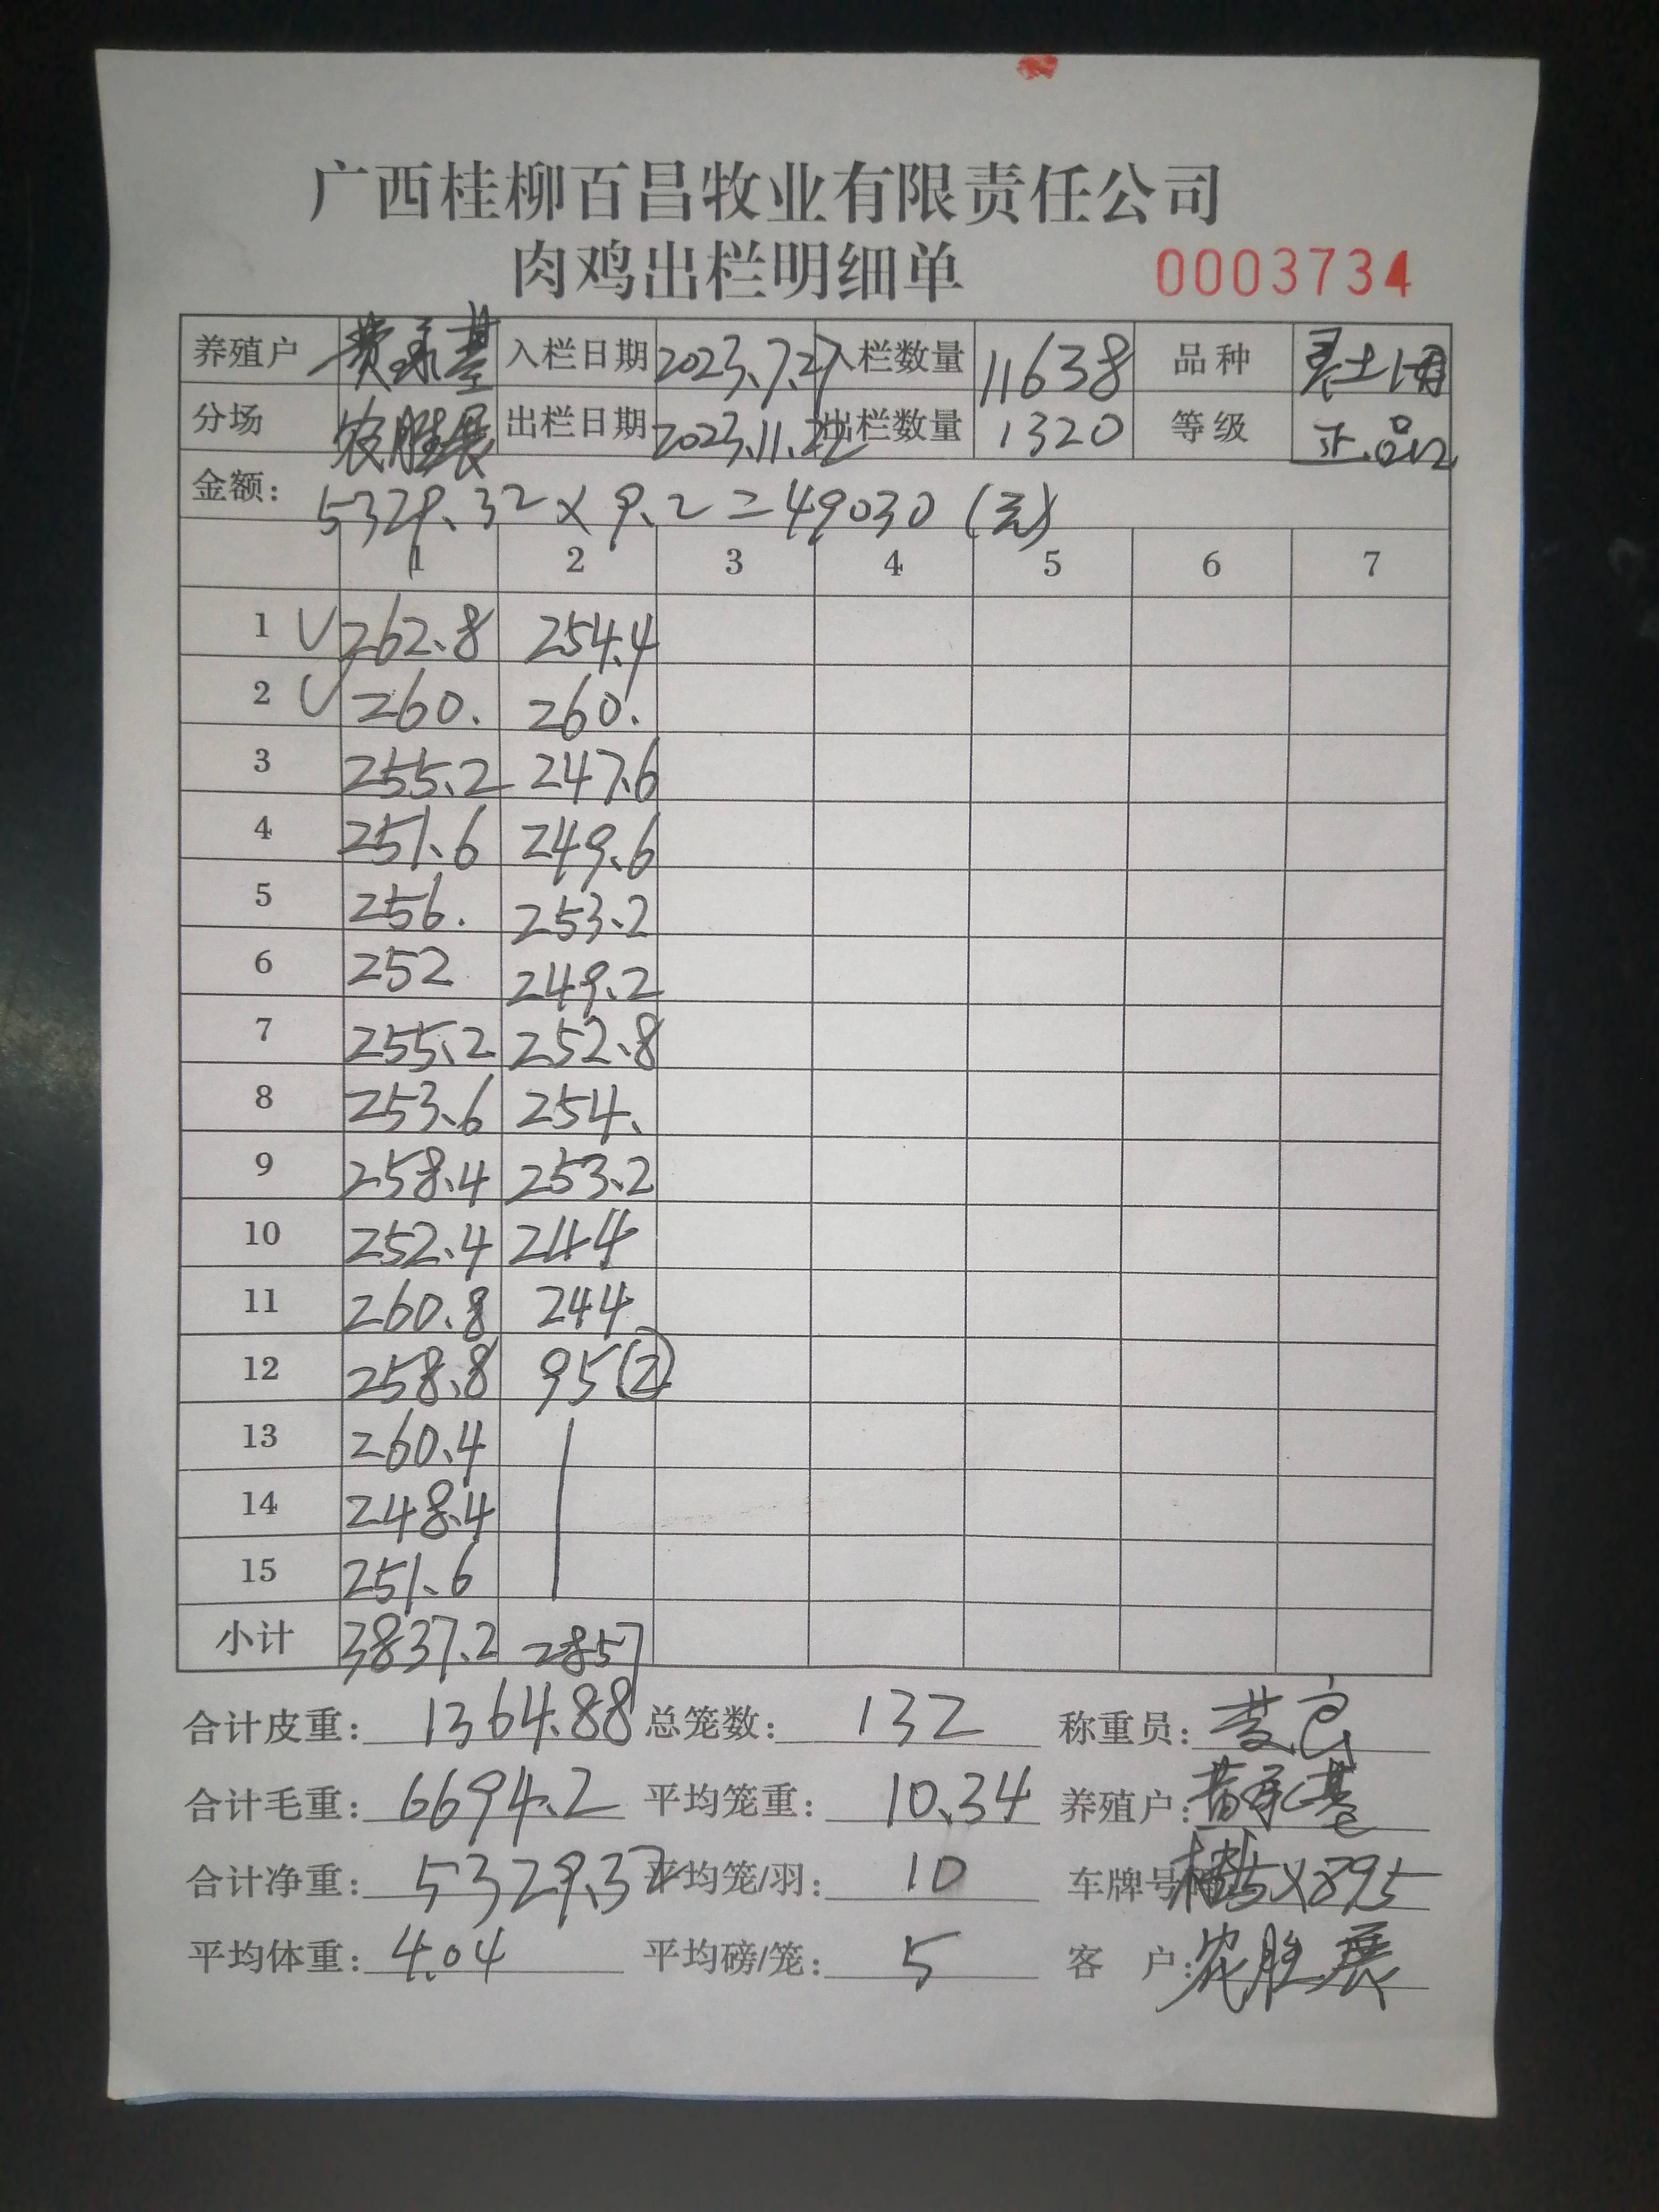 广西桂柳百昌牧业有限责任公司
肉鸡出栏明细单 0003734
养殖户 入栏日期 2023.7.27 入栏数量 11638 品种
分场 农胜展 出栏日期 2023.11.22 出栏数量 1320 等级 正品
金额: 5329.32×9.2=49030(元)
1 2 3 4 5 6 7
1 262.8 254.4
2 260. 260.
3 255.2 247.6
4 251.6 249.6
5 256. 253.2
6 252 249.2
7 255.2 252.8
8 253.6 254.
9 258.4 253.2
10 252.4 244
11 260.8 244
12 258.8 95②
13 260.4
14 248.4
15 251.6
小计 3837.2 2857
合计皮重: 1364.88 总笼数: 132 称重员:
合计毛重: 6694.2 平均笼重: 10.34 养殖户:
合计净重: 5329.32 平均笼/羽: 10 车牌号
平均体重: 4.04 平均磅/笼: 5 客户: 农胜展